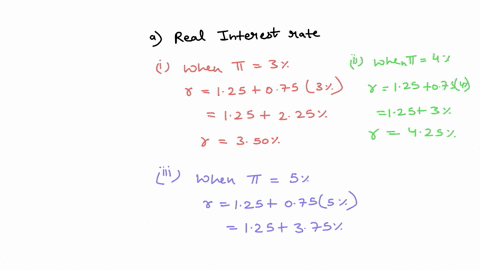 a) Real Interest rate
(i) when π = 3%
r = 1.25 + 0.75 (3%)
= 1.25 + 2.25%
r = 3.50%
(ii) when π = 4%
r = 1.25 + 0.75(4%)
= 1.25 + 3%
r = 4.25%
(iii) when π = 5%
r = 1.25 + 0.75 (5%)
= 1.25 + 3.75%